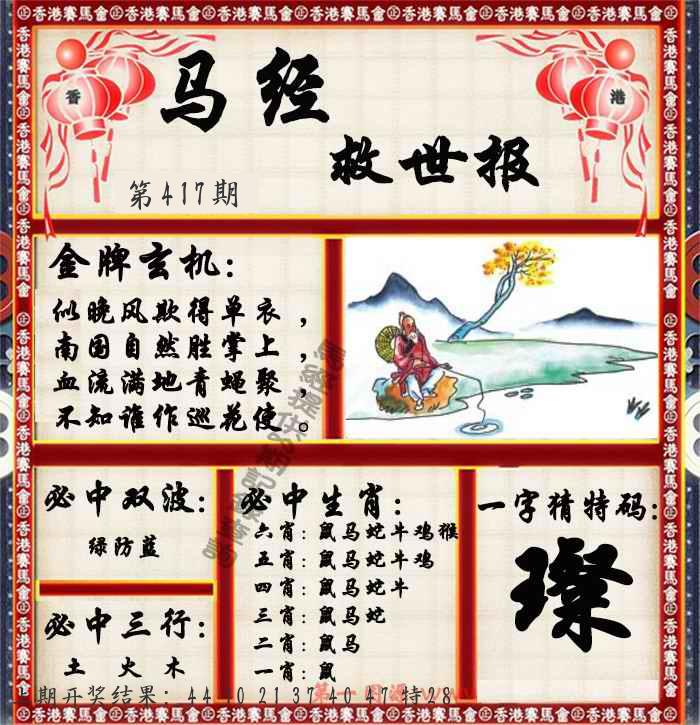 香港賽馬會
香 港
马经
救世报
第417期
金牌玄机：
似晚风欺得单衣，
南国自然胜掌上，
血流满地青蝇聚，
不知谁作巡花使。
必中双波：
绿防蓝
必中三行：
土 火 木
必中生肖：
六肖：鼠马蛇牛鸡猴
五肖：鼠马蛇牛鸡
四肖：鼠马蛇牛
三肖：鼠马蛇
二肖：鼠马
一肖：鼠
一字猜特码：
璨
期开奖结果：44 40 21 37 40 47 特28